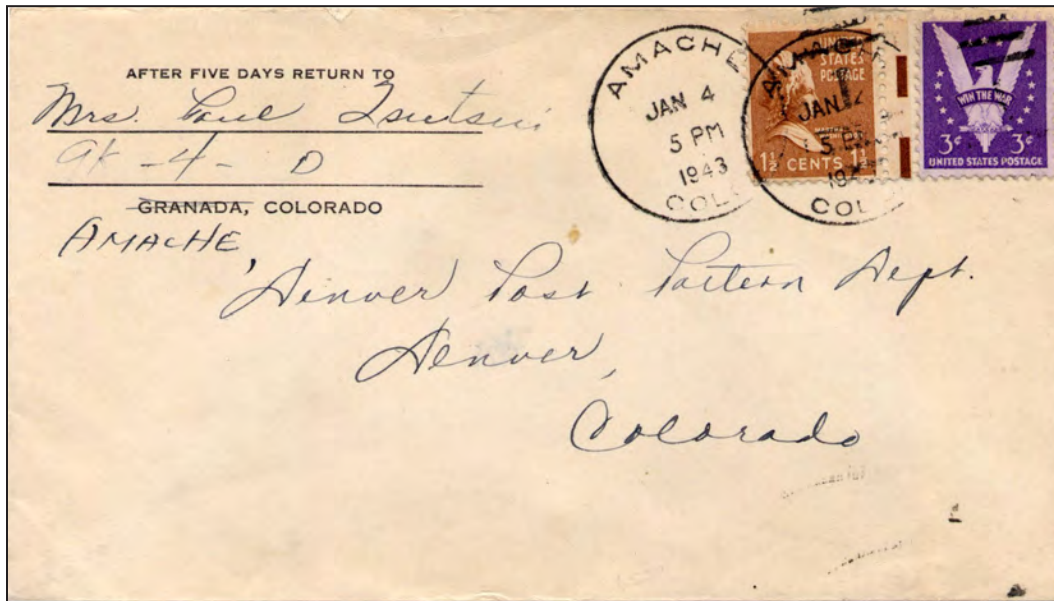 AFTER FIVE DAYS RETURN TO
Mrs. Paul Tsutsui
9K-4-D
GRANADA, COLORADO
AMACHE,
AMACHE
JAN 4
5 PM
1943
COLO
UNITED
STATES
POSTAGE
1½ CENTS 1½
JAN
5 P
COL
WIN THE WAR
3¢ 3¢
UNITED STATES POSTAGE
Denver Post Pattern Dept.
Denver,
Colorado